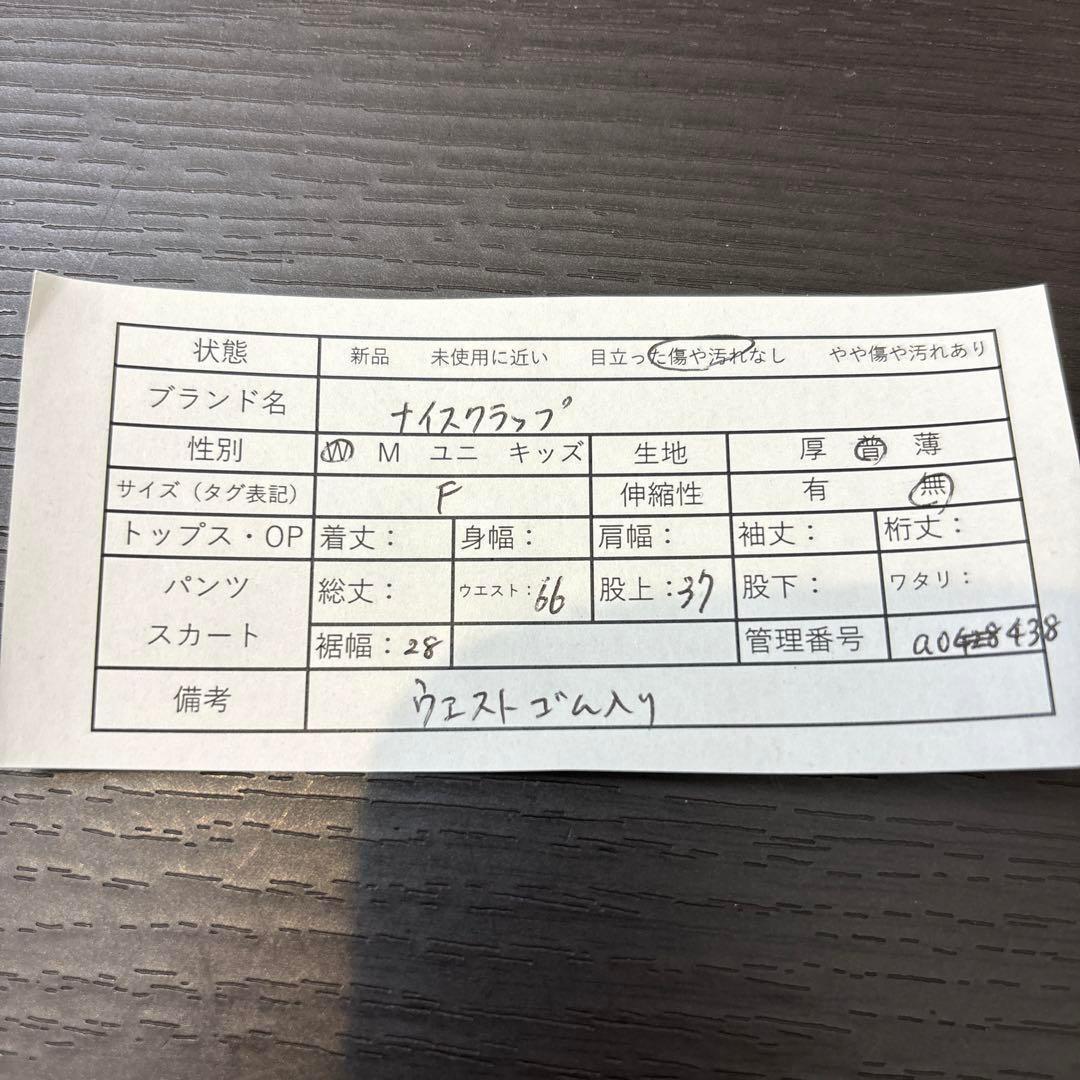 状態 新品 未使用に近い 目立った傷や汚れなし やや傷や汚れあり
ブランド名 ナイスクラップ
性別 W M ユニ キッズ 生地 厚 普 薄
サイズ（タグ表記） F 伸縮性 有 無
トップス・OP 着丈： 身幅： 肩幅： 袖丈： 桁丈：
パンツ 総丈： ウエスト：66 股上：37 股下： ワタリ：
スカート 裾幅：28 管理番号 a0438
備考 ウエストゴム入り